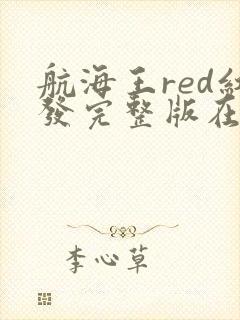 航海王red紅
發完整版在
李心草